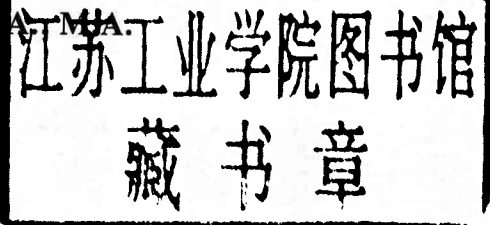 A. M.A.
江苏工业学院图书馆
藏书章